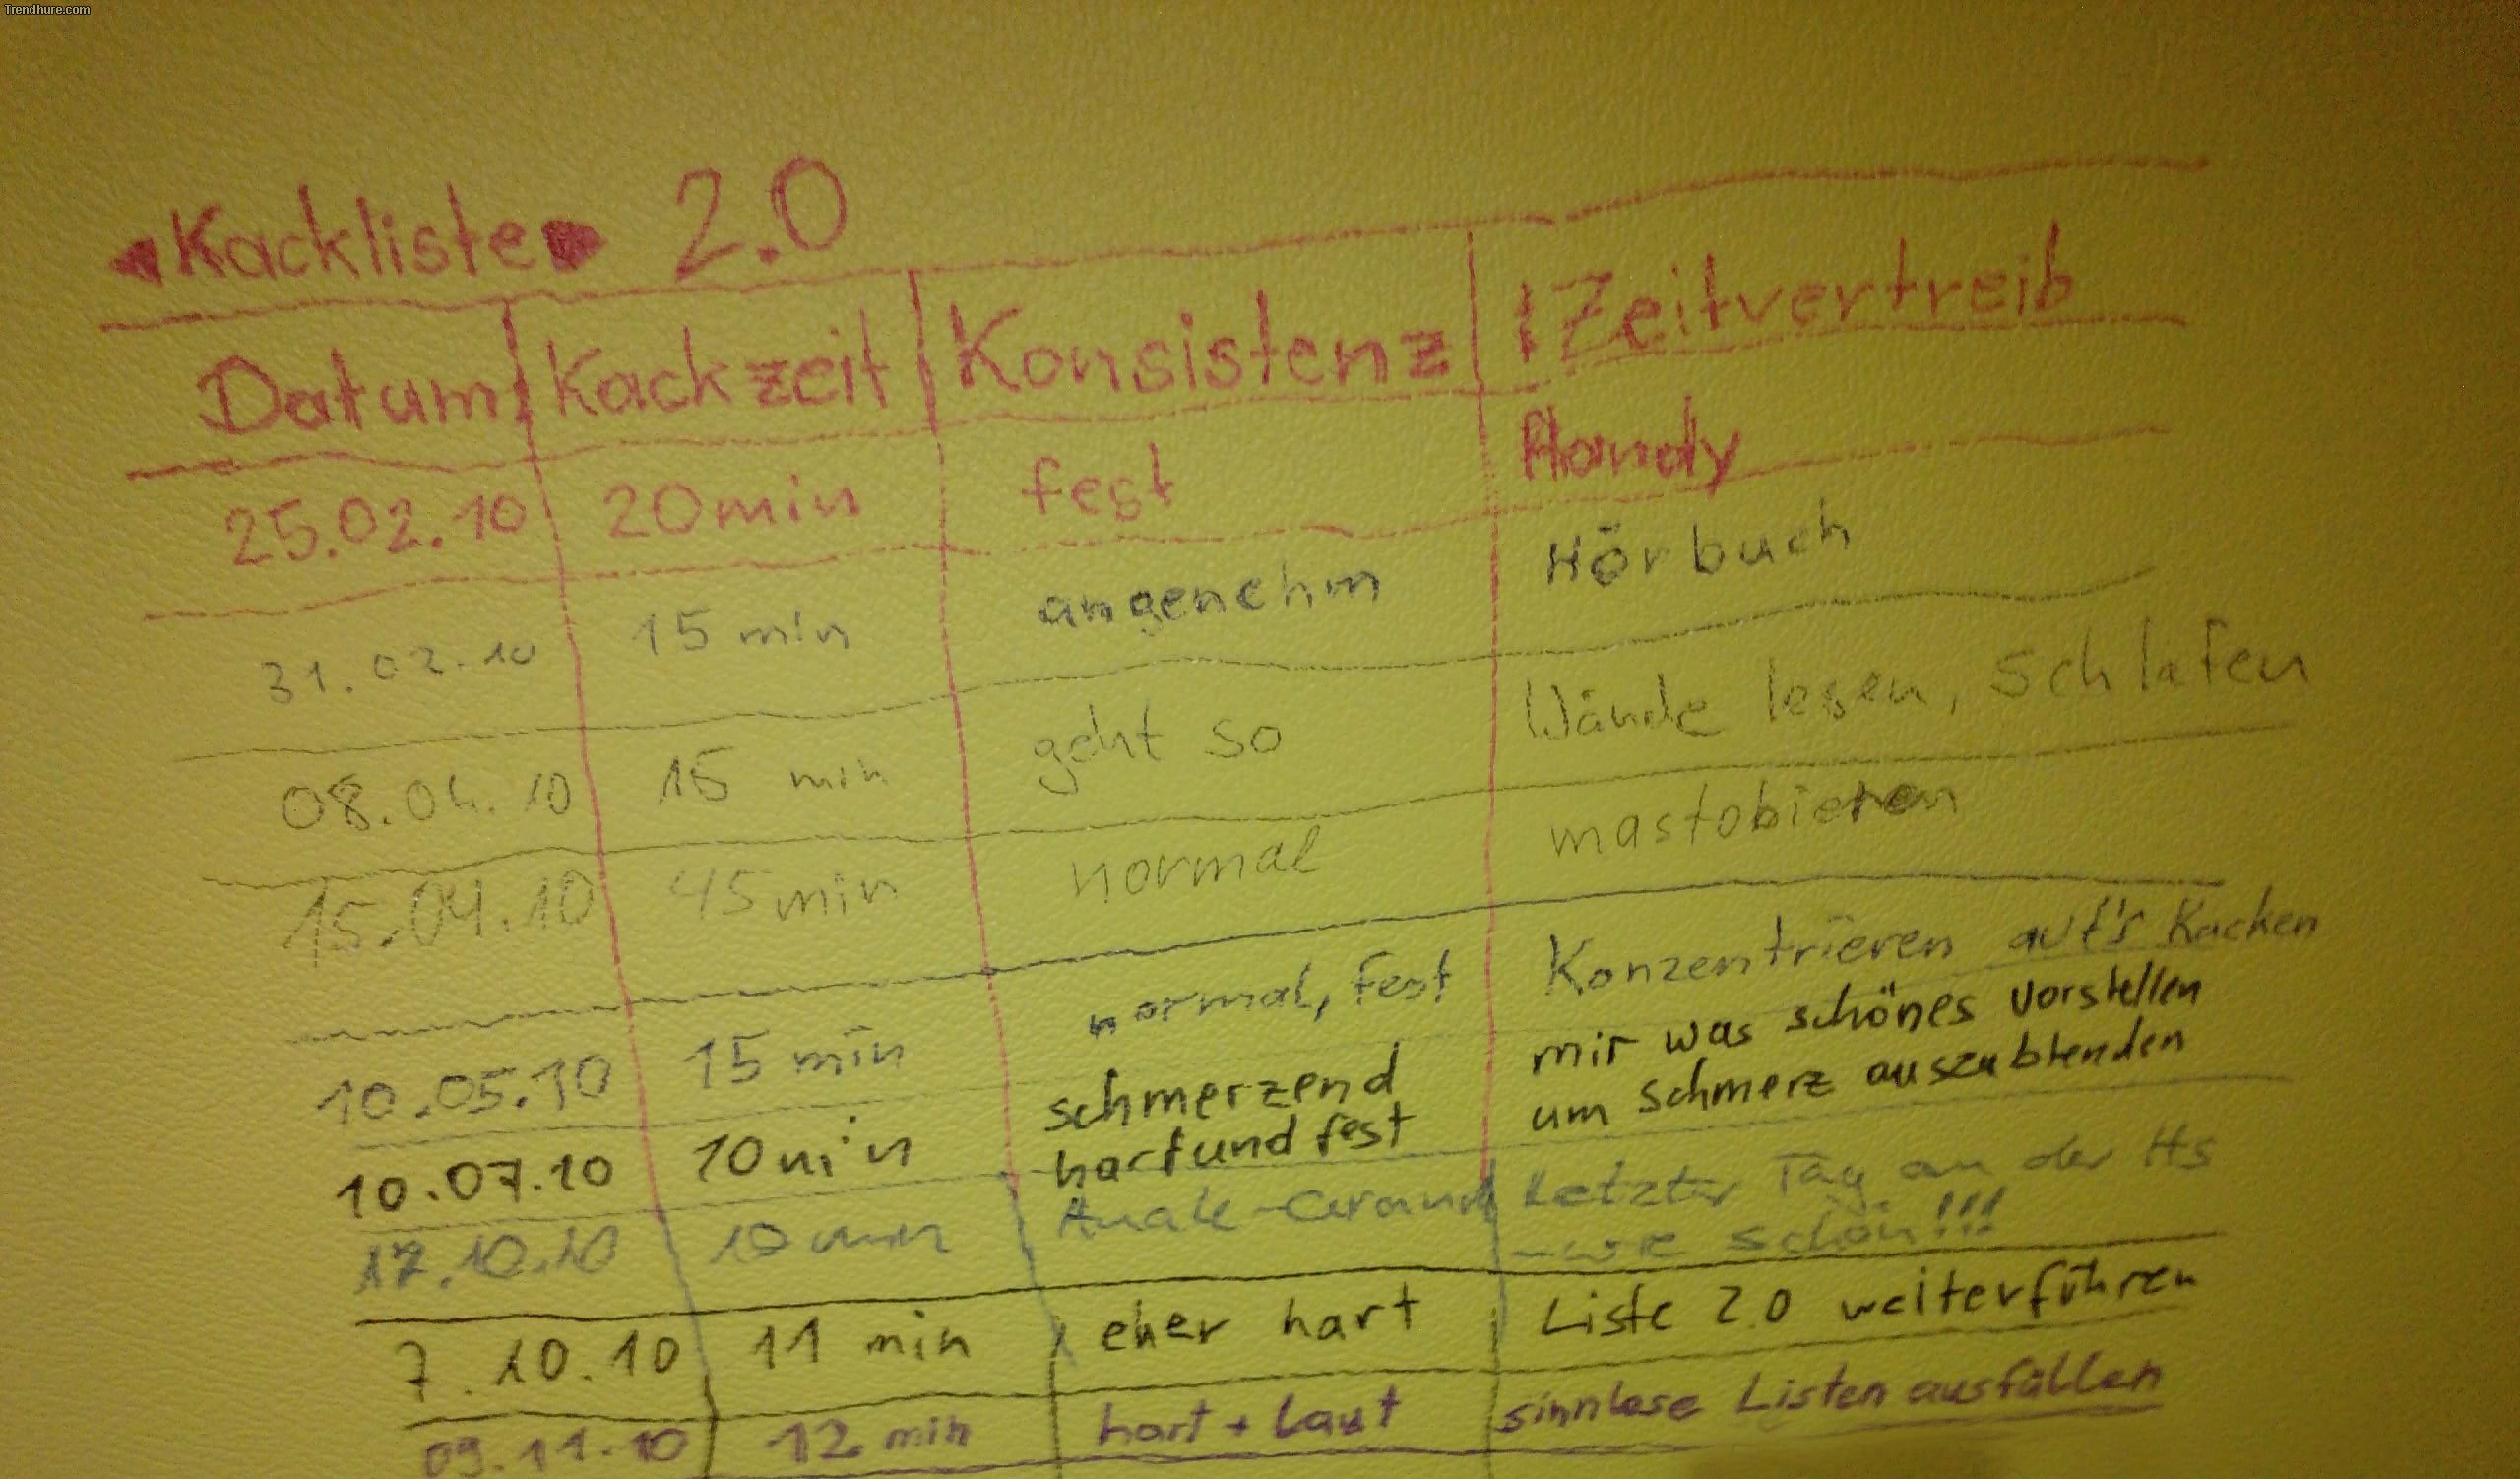 Trendhure.com
Kackliste 2.0
Datum Kackzeit Konsistenz Zeitvertreib
25.02.10 20min fest Handy
31.02.10 15 min angenehm Hörbuch
08.04.10 15 min geht so Wände lesen, schlafen
15.04.10 45min normal mastobieren
10.05.10 15 min normal, fest Konzentrieren auf's Kacken
10.07.10 10min schmerzend mir was schönes vorstellen
hart und fest um schmerz auszublenden
17.10.10 10 min Letzter Tag an der Hs
- wie schön!!!
7.10.10 11 min eher hart Liste 2.0 weiterführen
09.11.10 12 min hart + laut sinnlose Listen ausfüllen